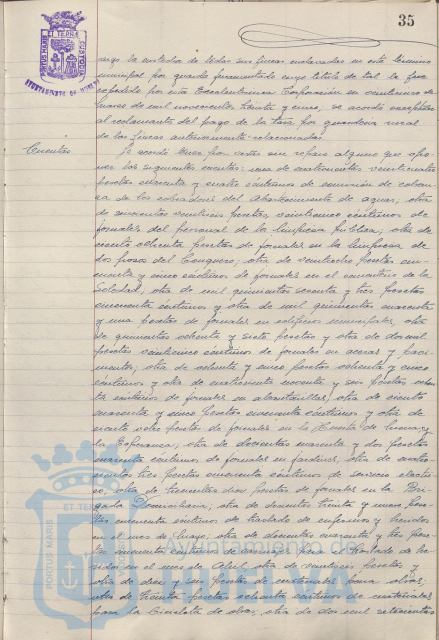 35
PORTUS MARIS ET TERRA CUSTODIA
AYUNTAMIENTO DE HUELVA
cargo la custodia de todas sus fincas enclavadas en este término
municipal por guarda juramentado cuyo título de tal le fue
expedido por esta Excelentísima Corporación en veintiseis de
marzo de mil novecientos treinta y cinco, se acordó exceptuar
al reclamante del pago de la tasa por guardería rural
de las fincas anteriormente relacionadas.
Cuentas
Se acordó pasar por veces sin reparo alguno que apro-
bar las siguientes cuentas: una de cuatrocientas veinticuatro
pesetas cuarenta y cuatro céntimos de comisión de cobran-
za de los cobradores del Abastecimiento de aguas, otra
de seiscientas veintiseis pesetas, veinticinco céntimos de
jornales del personal de la limpieza pública; otra de
ciento ochenta pesetas de jornales en la limpieza de
dos pozos del Conquero; otra de veintiocho pesetas cin-
cuenta y cinco céntimos de jornales en el cementerio de la
Soledad, otra de mil quinientas sesenta y tres pesetas
cincuenta céntimos y otra de mil quinientas cuarenta
y una pesetas de jornales en edificios municipales, otra
de quinientas ochenta y siete pesetas y otra de dos mil
pesetas veinticinco céntimos de jornales en aceras y pavi-
mentos; otra de ochenta y cinco pesetas ochenta y cinco
céntimos y otra de cuatrocientas noventa y seis pesetas ochen-
ta céntimos de jornales en alcantarillas, otra de ciento
cuarenta y cinco pesetas cincuenta céntimos y otra de
ciento ocho pesetas de jornales en la Huerta de
la Esperanza; otra de doscientas cuarenta y dos pesetas
cuarenta céntimos de jornales en jardines, otra de cuatro-
tres pesetas cuarenta céntimos de servicio eléctri-
co, otra de trescientas diez pesetas de jornales en la Bri-
gada Sanitaria, otra de doscientas treinta y nueve pese-
tas cincuenta céntimos de traslado de enfermos y heridos
en el mes de Mayo, otra de doscientas cuarenta y tres pese-
tas cincuenta céntimos de para traslado de he-
ridos en el mes de Abril, otra de veintiseis pesetas y
otra de diez y seis pesetas de materiales para obras,
otra de treinta pesetas ochenta céntimos de materiales
para la de obras, otra de dos mil setecientas
PORTUS MARIS ET TERRA
Ayuntamiento de
HUELVA